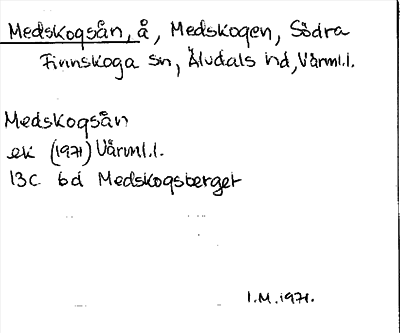 Medskogsån, å, Medskogen, Södra
Finnskoga sn, Älvdals hd, Värml.l.
Medskogsån
ek (1971) Värml.l.
13C bd Medskogsberget
I.M. 1971.